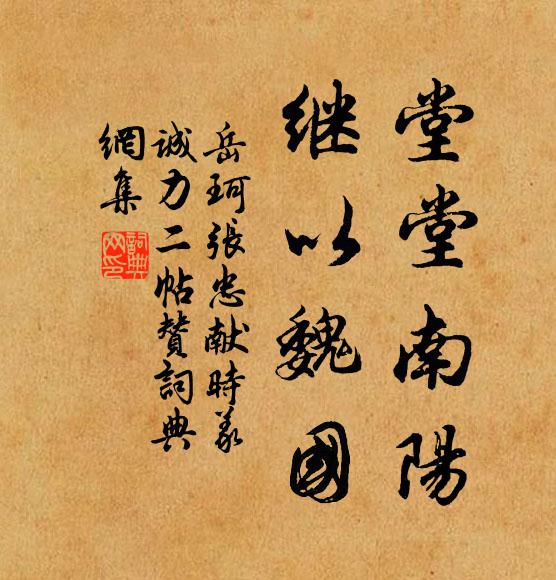 堂堂南陽
继以魏國
岳珂張忠献時义
誠力二帖贊詞典
網集
詞典网印